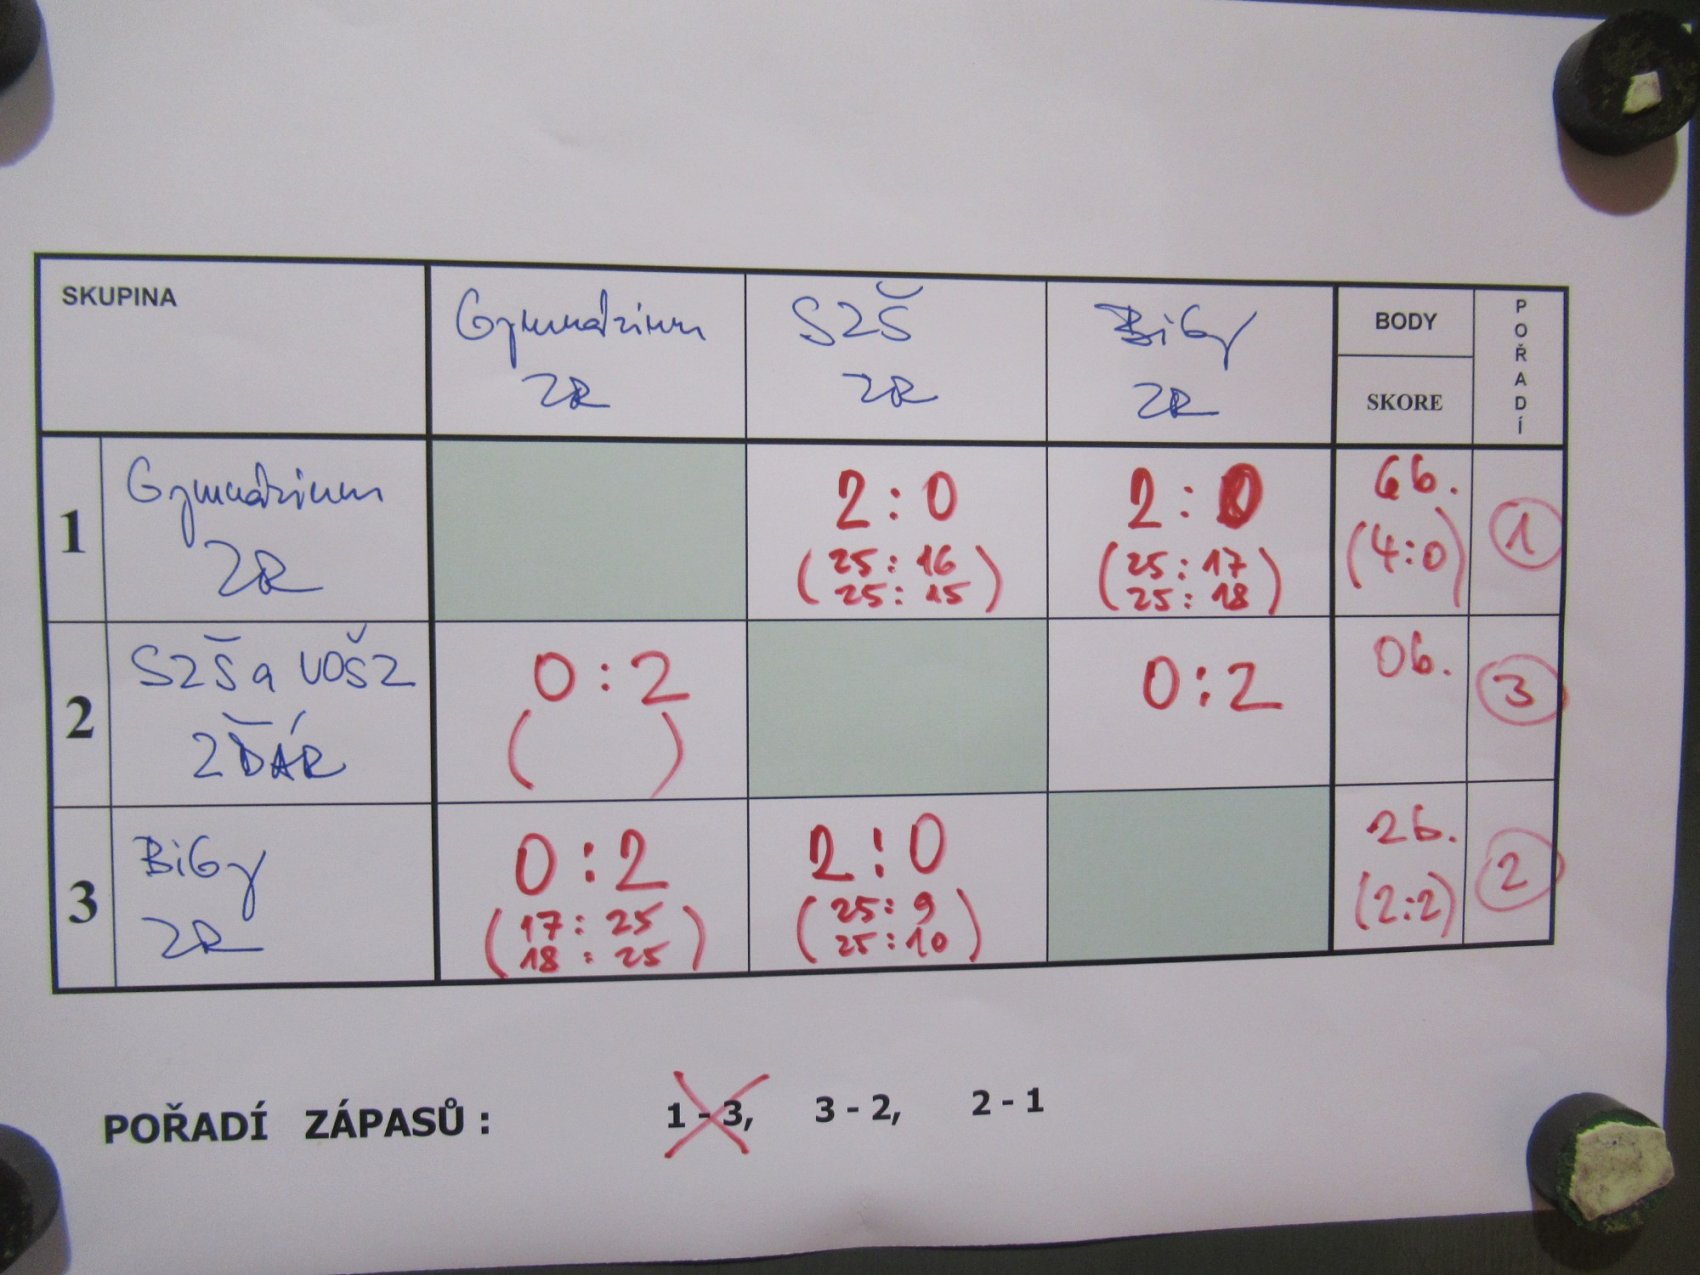 SKUPINA
Gymnázium
ZR
SZŠ
ZR
BiGy
ZR
BODY
SKORE
POŘADÍ
1
Gymnázium
ZR
2:0
(25:16
25:15)
2:0
(25:17
25:18)
6b.
(4:0)
1
2
SZŠ a VOŠZ
ŽĎÁR
0:2
( )
0:2
0b.
3
3
BiGy
ZR
0:2
(17:25
18:25)
2:0
(25:9
25:10)
2b.
(2:2)
2
POŘADÍ ZÁPASŮ : 1 - 3, 3 - 2, 2 - 1